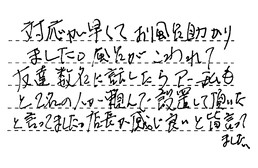 対応が早くてお風呂助かり
ました。風呂がこわれて
友達数名に話したらアー私も
と2名の人が頼んで設置して頂いた
と言ってました。店長が感じ良いと皆言って
ました。